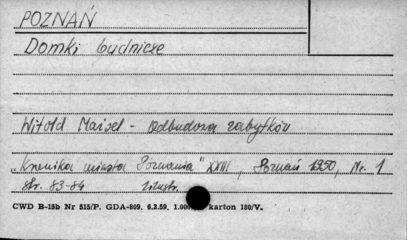 POZNAŃ
Domki budnicze
Witold Maisel - Odbudowa zabytków
"Kronika miasta Poznania" XXIII, Poznań 1950, Nr. 1
str. 83-84 ilustr.
CWD B-15b Nr 515/P. GDA-869, 6.3.59, 1.000 karton 180/V.